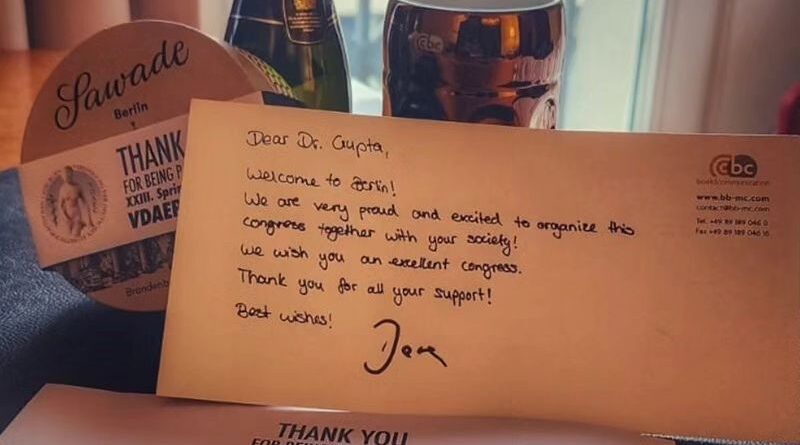 Sawade
Berlin
THANK
FOR BEING P
XXIII. Sprin
VDAEP
Brandenb
cbc
Dear Dr. Gupta,
Welcome to Berlin!
We are very proud and excited to organize this
congress together with your society!
We wish you an excellent congress.
Thank you for all your support!
Best wishes!
cbc
www.bb-mc.com
contact@bb-mc.com
Tel. +49 89 189 046 0
Fax +49 89 189 046 16
THANK YOU